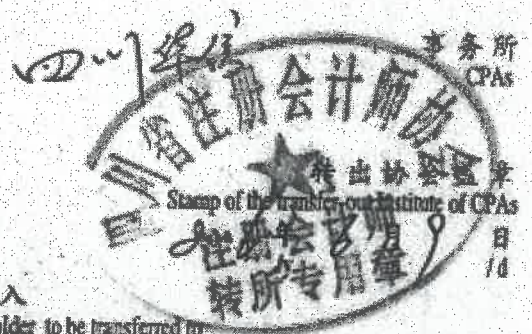 四川
事务所
CPAs
四川省注册会计师协会
转出协会盖章
Stamp of the transfer-out Institute of CPAs
注册会计师
年 月 日
/d
转所专用章
入
holder to be transferred to